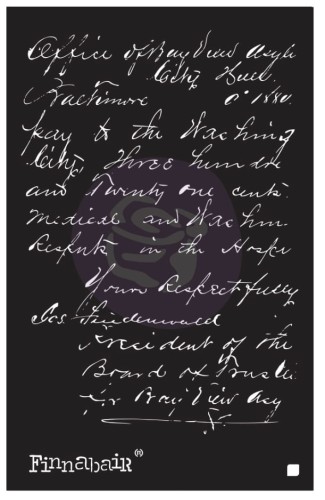 Office of Bay View Asyl
City Hall
Baltimore 0' 1880.
pay to the Washing
City, Three hundre
and Twenty one cents.
Medical and Washin
Respents in the Hospi
Yours Respectfully
Jos. Friedenwald
President of the
Board of Trustee
for Bay View Asy
Finnabair®